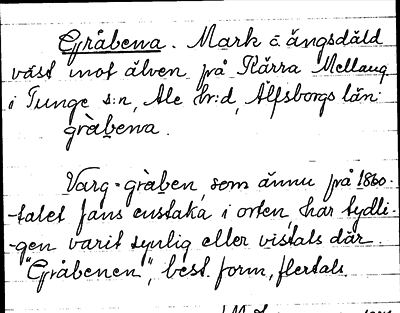 Gråbena. Mark å ängsdäld
väst mot älven på Kärra Mellang
i Tunge s:n, Ale hr:d, Älfsborgs län:
gràbena.
Varg-gràben, som ännu på 1860-
-talet fans enstaka i orten, har tydli-
-gen varit synlig eller vistats där.
"Gråbenen", best. form, flertals.